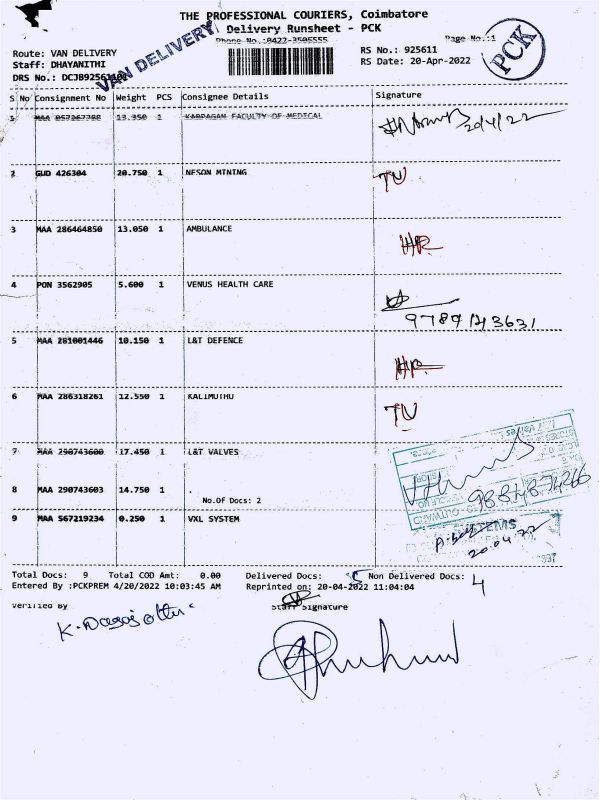 THE PROFESSIONAL COURIERS, Coimbatore
VAN DELIVERY
Delivery Runsheet - PCK
Phone No.:0422-3506555 Page No.:1
PCK
Route: VAN DELIVERY RS No.: 925611
Staff: DHAYANITHI RS Date: 20-Apr-2022
DRS No.: DCJB925611
S No Consignment No Weight PCS Consignee Details Signature
1 MAA 057267788 13.950 1 KARPAGAM FACULTY OF MEDICAL 20/4/22
2 GUD 426304 20.750 1 NESON MINING TU
3 MAA 286464850 13.050 1 AMBULANCE HR
4 PON 3562905 5.600 1 VENUS HEALTH CARE
9789143631
5 MAA 281001446 10.150 1 L&T DEFENCE HR
6 MAA 286318261 12.550 1 KALIMUTHU TU
7 MAA 290743600 17.450 1 L&T VALVES
8 MAA 290743603 14.750 1 .
No.Of Docs: 2
9884874266
9 MAA 567219234 0.250 1 VXL SYSTEM
20.04.22
Total Docs: 9 Total COD Amt: 0.00 Delivered Docs: 5 Non Delivered Docs: 4
Entered By :PCKPREM 4/20/2022 10:03:45 AM Reprinted on: 20-04-2022 11:04:04
Verified By Staff Signature